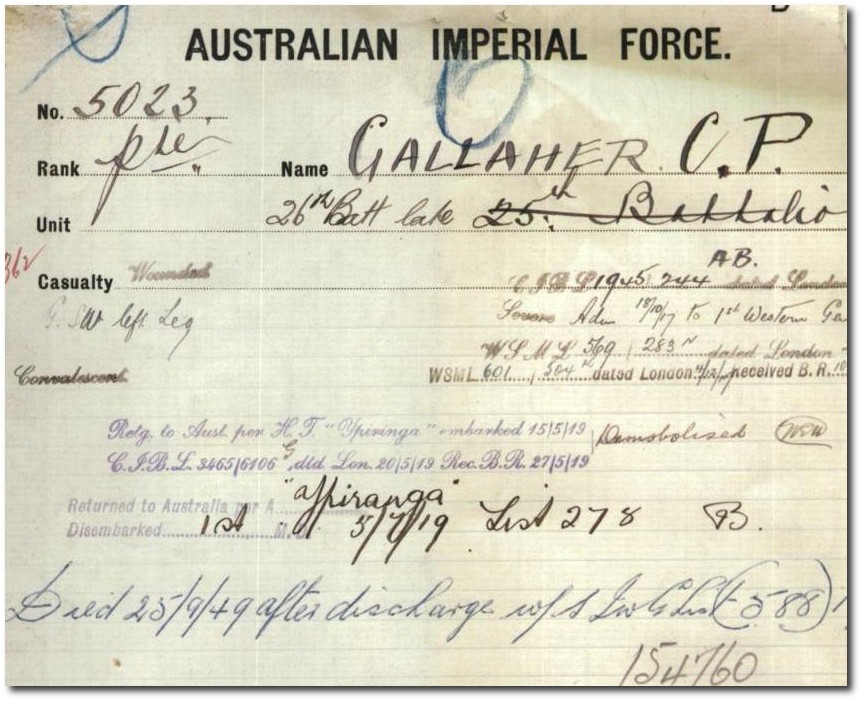 AUSTRALIAN IMPERIAL FORCE.
No. 5023
Rank pte Name GALLAHER. C. P.
Unit 26th Batt late 25th Battalio
362
Casualty Wounded
AB.
C.I.B.L 1945/244 dated London
G.SW left Leg
Severe Adm 18/10/17 to 1st Western Ge
W.S.M.L 569 283 dated London
Convalescent
WSML. 601 dated London Received B.R. 10
Retg. to Aust. per H.T. "Ypiringa" embarked 15/5/19 Demobolised NSW
C.I.B.L. 3465/6106 G, dtd Lon. 20/5/19 Rec. B.R. 27/5/19
Returned to Australia per A "Ypiranga"
Disembarked 1st M.D. 5/7/19 List 278 B.
Died 25/9/49 after discharge (588)
154760